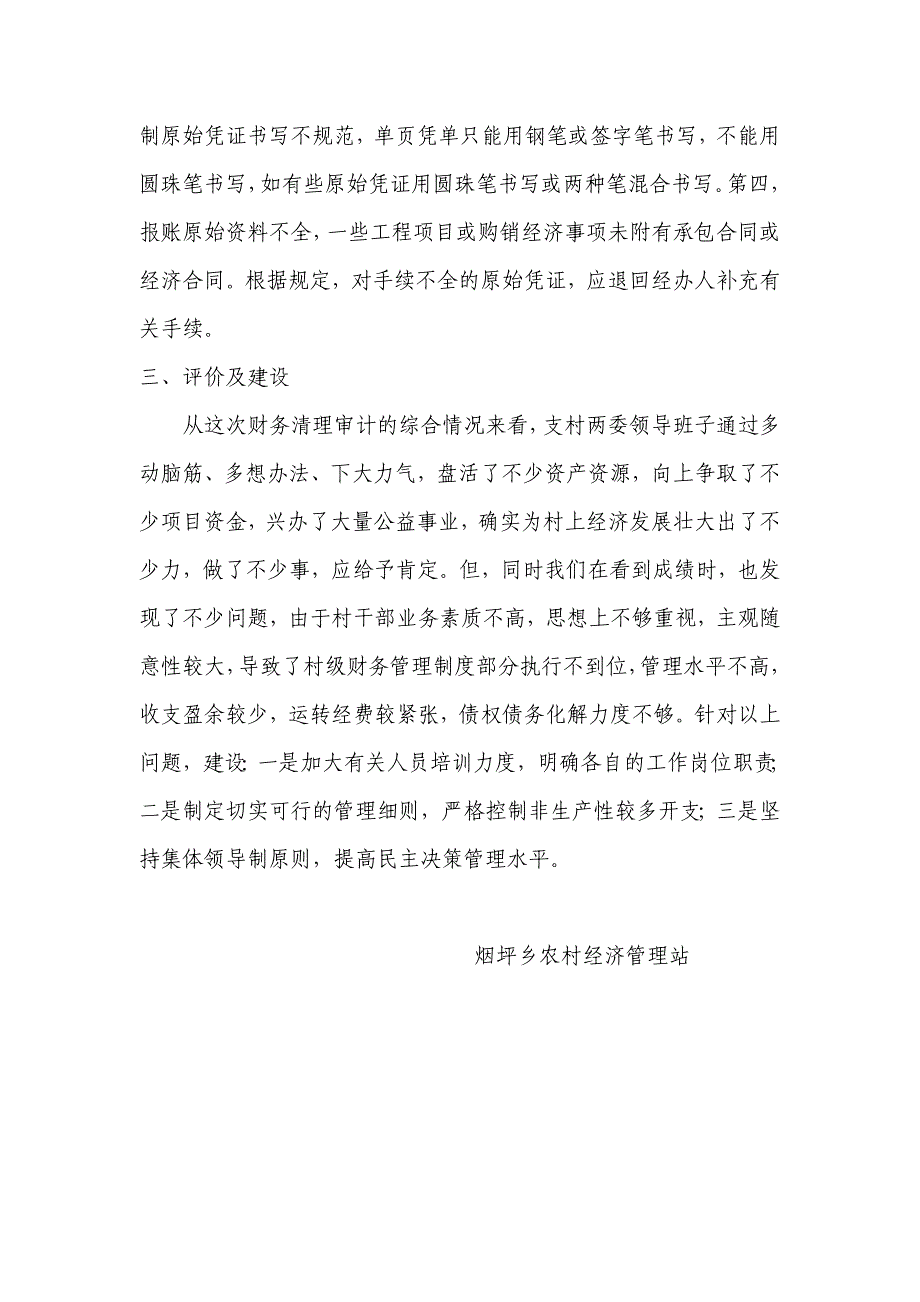 制原始凭证书写不规范，单页凭单只能用钢笔或签字笔书写，不能用
圆珠笔书写，如有些原始凭证用圆珠笔书写或两种笔混合书写。第四，
报账原始资料不全，一些工程项目或购销经济事项未附有承包合同或
经济合同。根据规定，对手续不全的原始凭证，应退回经办人补充有
关手续。
三、评价及建设
从这次财务清理审计的综合情况来看，支村两委领导班子通过多
动脑筋、多想办法、下大力气，盘活了不少资产资源，向上争取了不
少项目资金，兴办了大量公益事业，确实为村上经济发展壮大出了不
少力，做了不少事，应给予肯定。但，同时我们在看到成绩时，也发
现了不少问题，由于村干部业务素质不高，思想上不够重视，主观随
意性较大，导致了村级财务管理制度部分执行不到位，管理水平不高，
收支盈余较少，运转经费较紧张，债权债务化解力度不够。针对以上
问题，建设：一是加大有关人员培训力度，明确各自的工作岗位职责；
二是制定切实可行的管理细则，严格控制非生产性较多开支；三是坚
持集体领导制原则，提高民主决策管理水平。
烟坪乡农村经济管理站